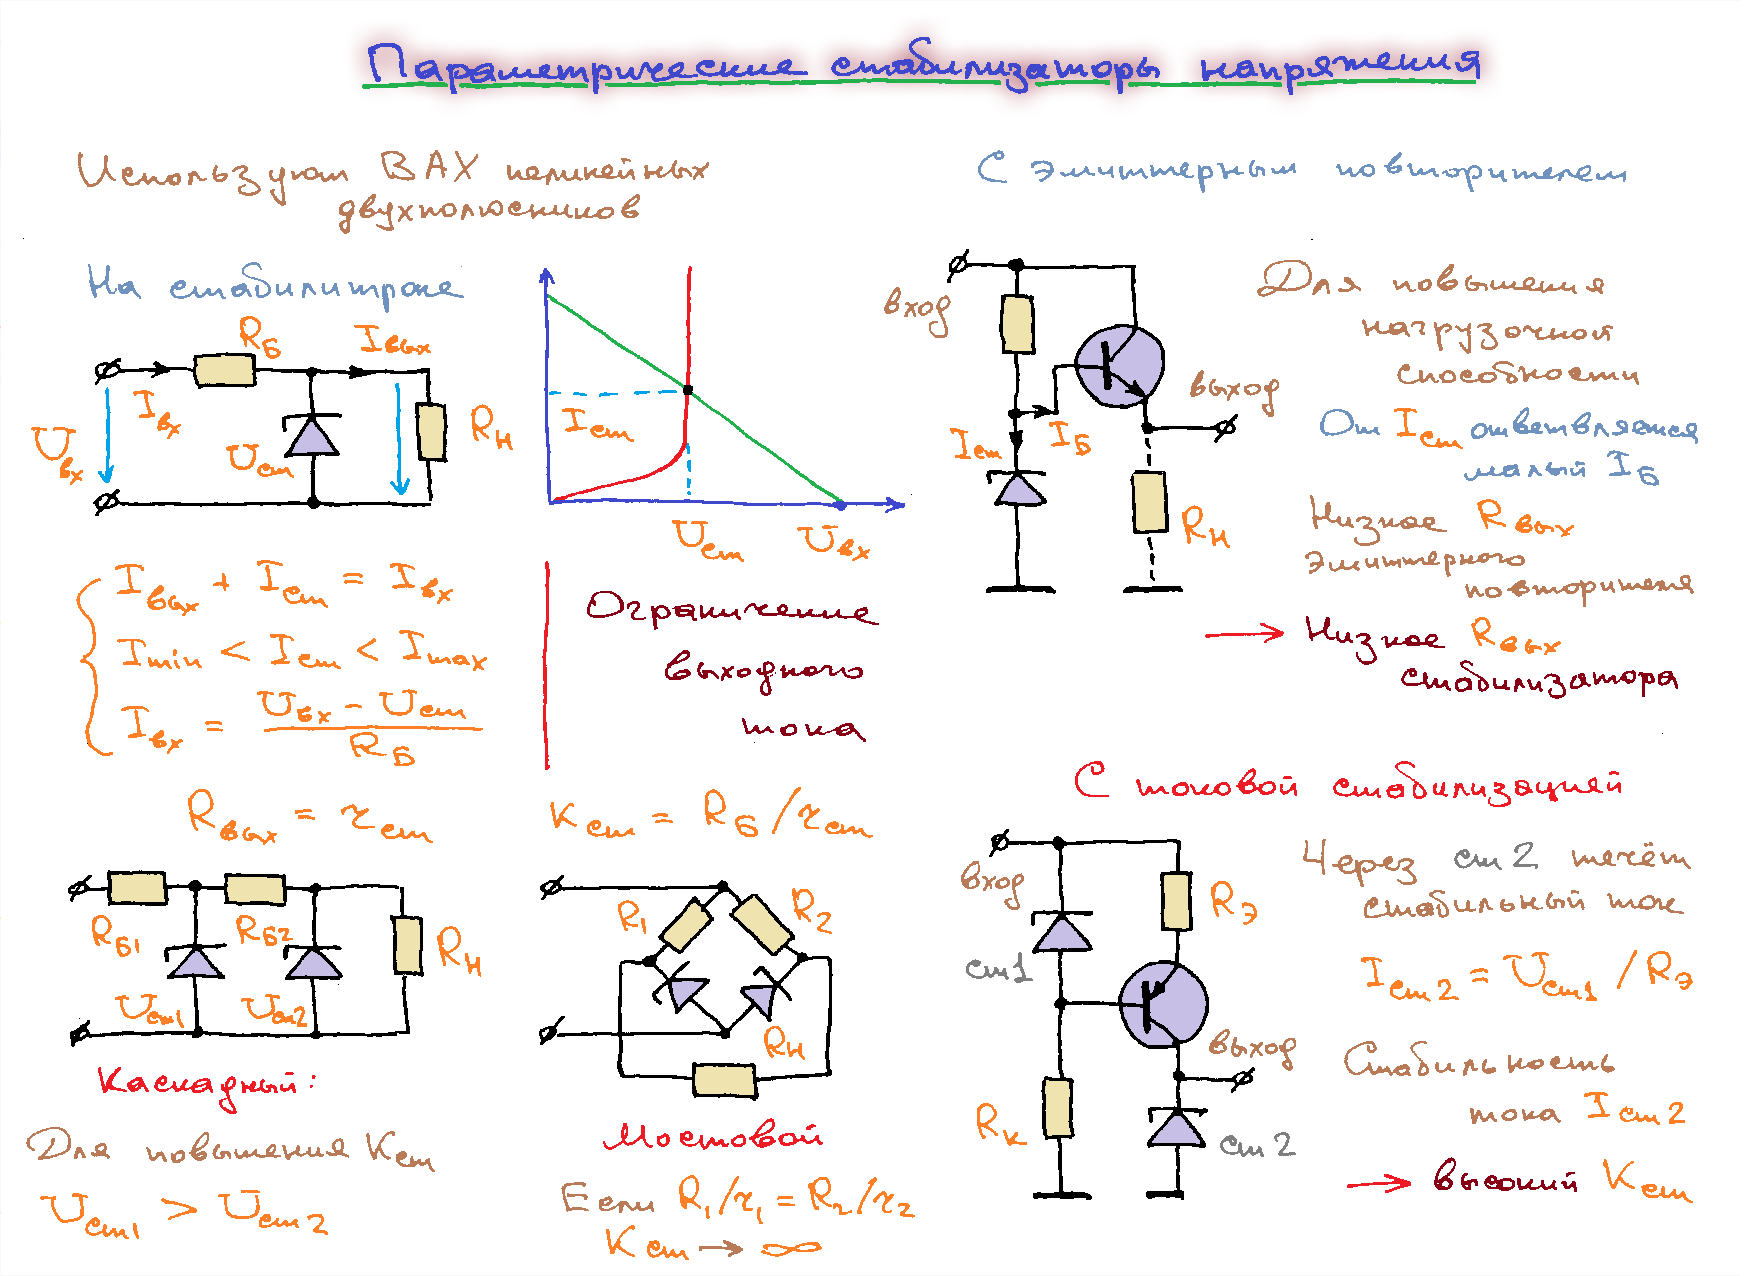 Параметрические стабилизаторы напряжения
Используют ВАХ нелинейных
двухполюсников
На стабилитроне
Rб
Iвых
Iвх
Uвх
Uст
Rн
Iст
Uст
Uвх
Iвых + Iст = Iвх
Imin < Iст < Imax
Iвх = (Uвх - Uст) / Rб
Ограничение
выходного
тока
Rвых = rст
Kст = Rб / rст
Rб1
Rб2
Rн
Uст1
Uст2
Каскадный:
Для повышения Kст
Uст1 > Uст2
R1
R2
Rн
Мостовой
Если R1/r1 = R2/r2
Kст → ∞
С эмиттерным повторителем
вход
Iст
Iб
выход
Rн
Для повышения
нагрузочной
способности
От Iст ответвляется
малый Iб
Низкое Rвых
эмиттерного
повторителя
→ Низкое Rвых
стабилизатора
С токовой стабилизацией
вход
Rэ
ст1
Rк
выход
ст2
Через ст2 течёт
стабильный ток
Iст2 = Uст1 / Rэ
Стабильность
тока Iст2
→ высокий Kст